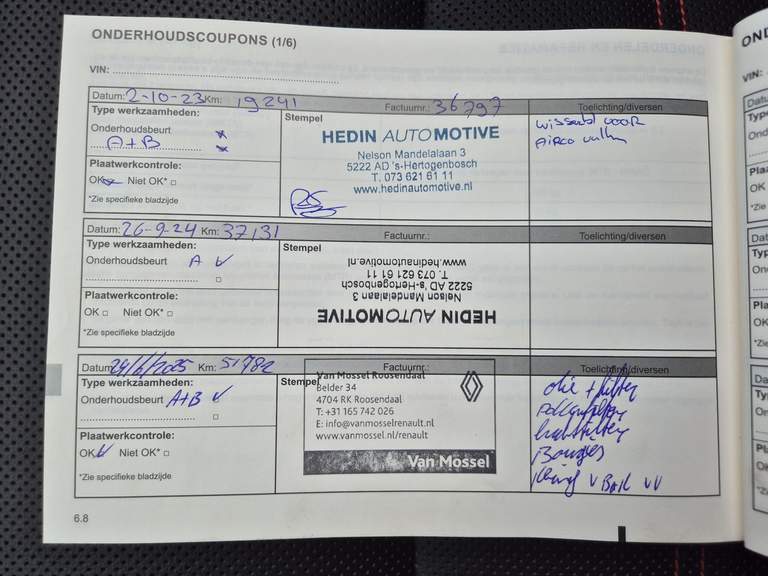 ONDERHOUDSCOUPONS (1/6)
VIN:
Datum: 2-10-23 Km: 19241 Factuurnr.: 36797 Toelichting/diversen
Type werkzaamheden:
Onderhoudsbeurt
A+B
Plaatwerkcontrole:
OK Niet OK* □
*Zie specifieke bladzijde
Stempel
HEDIN AUTOMOTIVE
Nelson Mandelalaan 3
5222 AD 's-Hertogenbosch
T. 073 621 61 11
www.hedinautomotive.nl
VOOR
AIRCO
Datum: 26-9-24 Km: 37131 Factuurnr.: Toelichting/diversen
Type werkzaamheden:
Onderhoudsbeurt A
□
Plaatwerkcontrole:
OK □ Niet OK* □
*Zie specifieke bladzijde
Stempel
www.hedinautomotive.nl
T. 073 621 61 11
5222 AD 's-Hertogenbosch
Nelson Mandelalaan 3
HEDIN AUTOMOTIVE
Datum: 24/6/2025 Km: 51782 Factuurnr.: Toelichting/diversen
Type werkzaamheden:
Onderhoudsbeurt A+B
□
Plaatwerkcontrole:
OK Niet OK* □
*Zie specifieke bladzijde
Stempel
Van Mossel Roosendaal
Belder 34
4704 RK Roosendaal
T: +31 165 742 026
E: info@vanmosselrenault.nl
www.vanmossel.nl/renault
Van Mossel
olie + filter
pollenfilter
luchtfilter
Bougies
6.8
OND
VIN: